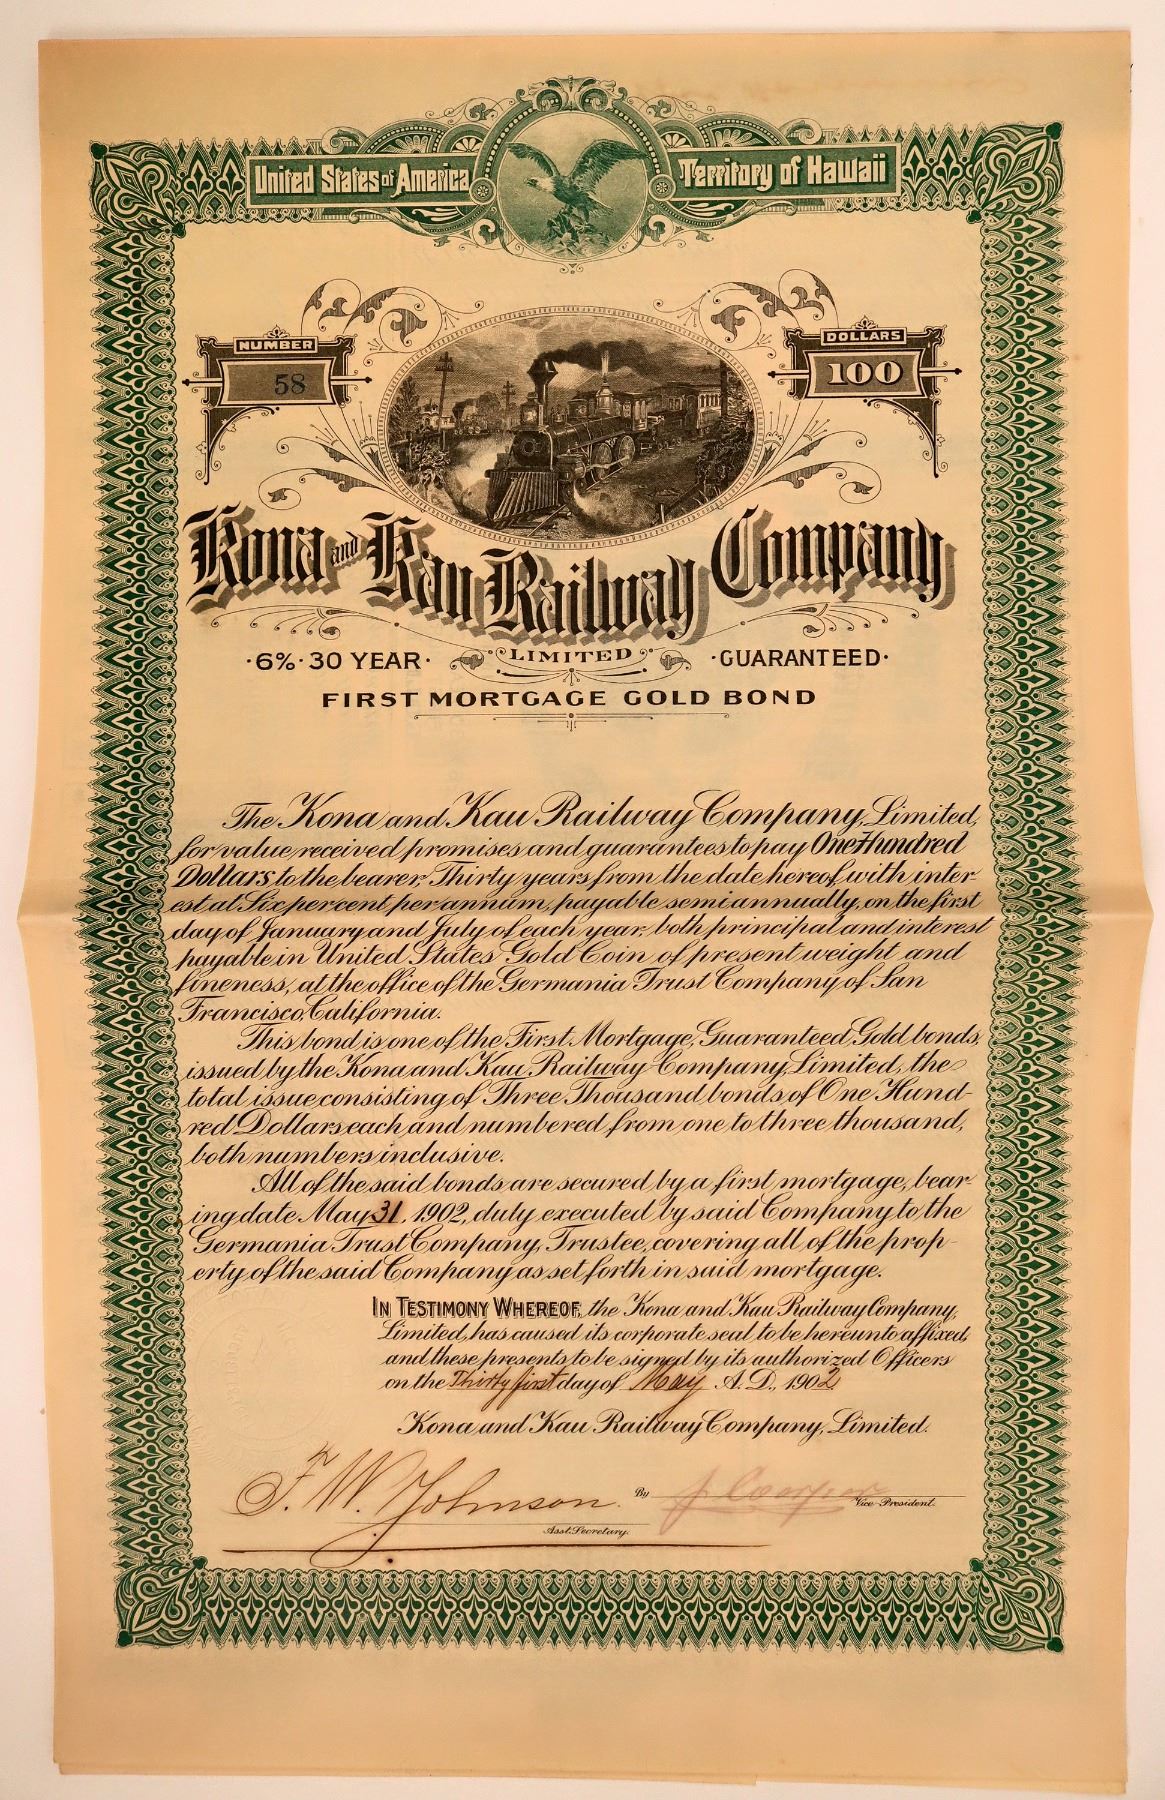 United States of America
Territory of Hawaii
NUMBER
58
DOLLARS
100
Kona and Kau Railway Company
LIMITED
·6%·30 YEAR·
·GUARANTEED·
FIRST MORTGAGE GOLD BOND
The Kona and Kau Railway Company, Limited,
for value received promises and guarantees to pay One Hundred
Dollars to the bearer, Thirty years from the date hereof with inter-
est at Six per cent per annum, payable semiannually, on the first
day of January and July of each year, both principal and interest
payable in United States Gold Coin of present weight and
fineness, at the office of the Germania Trust Company of San
Francisco, California.
This bond is one of the First Mortgage, Guaranteed Gold bonds,
issued by the Kona and Kau Railway Company, Limited, the
total issue consisting of Three Thousand bonds of One Hund-
red Dollars each and numbered from one to three thousand,
both numbers inclusive.
All of the said bonds are secured by a first mortgage, bear-
ing date May 31, 1902, duly executed by said Company to the
Germania Trust Company, Trustee, covering all of the prop-
erty of the said Company as set forth in said mortgage.
IN TESTIMONY WHEREOF, the Kona and Kau Railway Company,
Limited, has caused its corporate seal to be hereunto affixed,
and these presents to be signed by its authorized Officers
on the Thirty first day of May A. D., 1902
Kona and Kau Railway Company, Limited.
F. W. Johnson.
Asst. Secretary.
By J. Cowper
Vice-President.